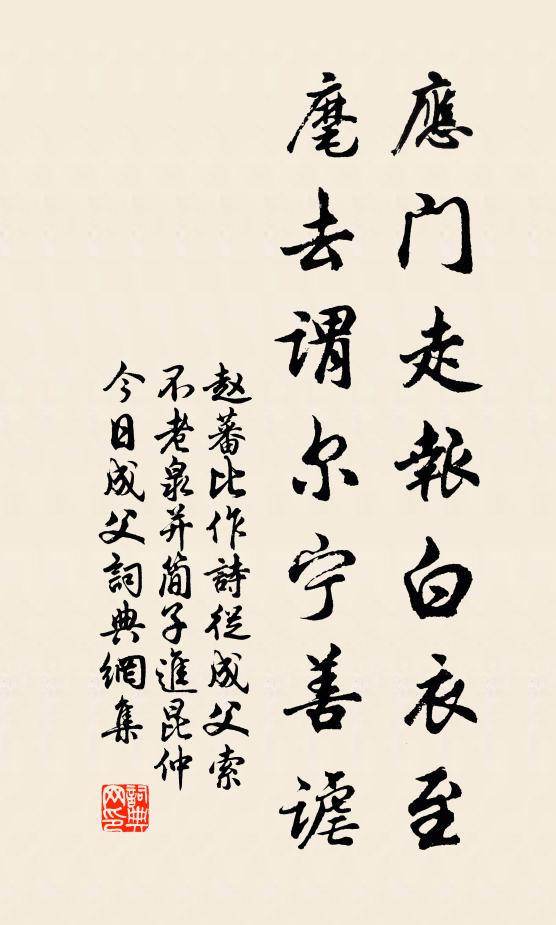 應門走報白衣至
麾去谓尔宁善謔
赵蕃比作詩從成父索
不老泉并简子進昆仲
今日成父詞典網集
詞典
网印